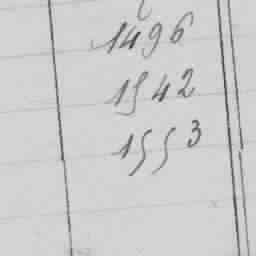 1496
1542
1553